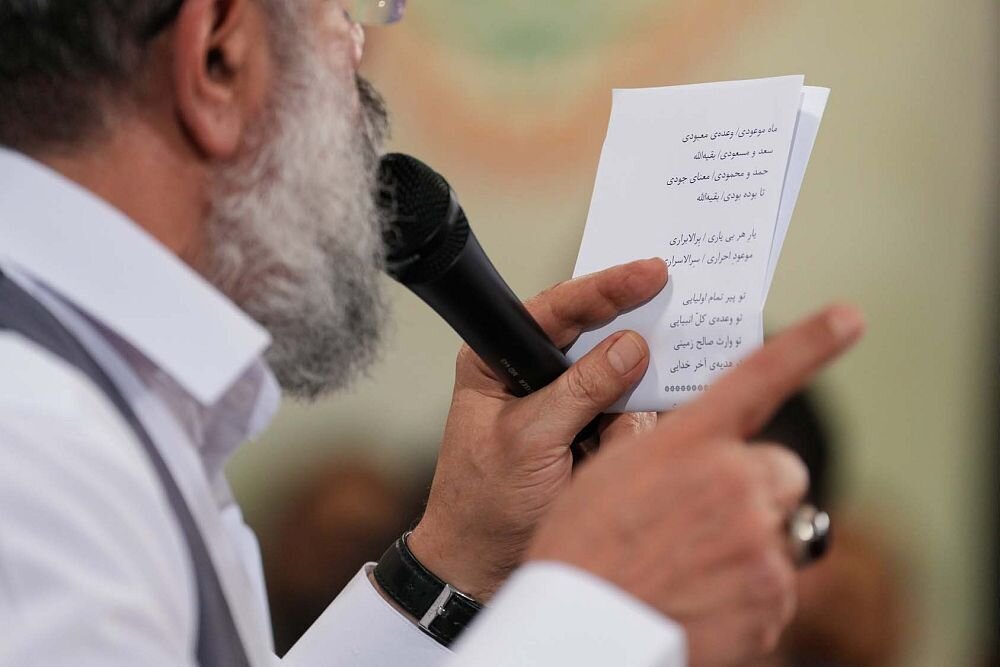 ماه موعودی/ وعده‌ی معبودی
سعد و مسعودی/ بقیه‌الله
حمد و محمودی/ معنای جودی
تا بوده بودی/ بقیه‌الله
یار هر بی یاری / برالابراری
موعود احراری / سرالاسراری
تو پیر تمام اولیایی
تو وعده‌ی کلّ انبیایی
تو وارث صالح زمینی
هدیه‌ی آخر خدایی